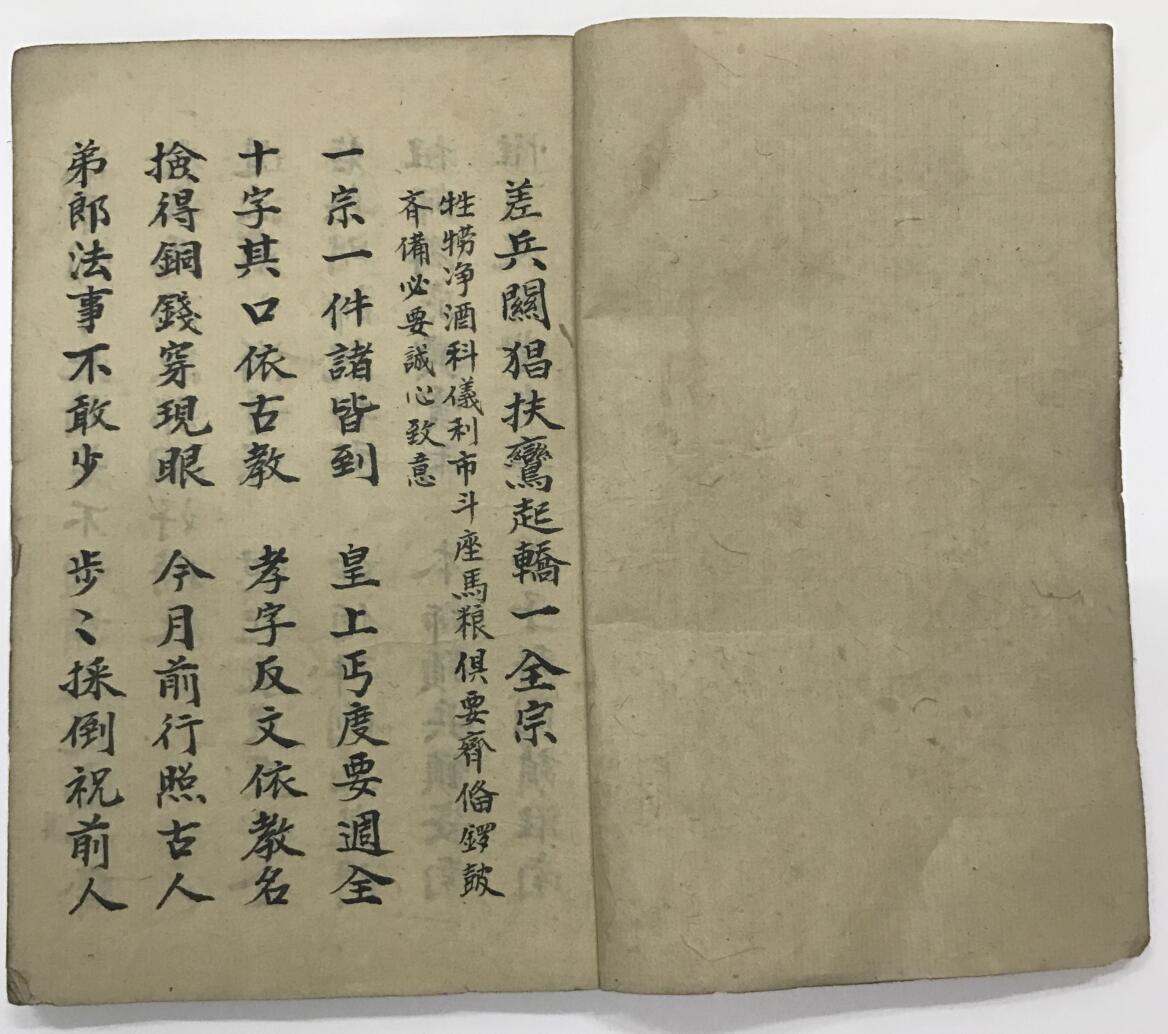 差兵關猖扶鸞起轎一全宗
牲捞净酒科儀利市斗座馬粮俱要齊俻鑼皷
斉備必要誠心致意
一宗一件諸皆到　皇上丐度要週全
十字其口依古教　孝字反文依教名
捡得銅錢穿現眼　今月前行照古人
弟郎法事不敢少　步〻採倒祝前人